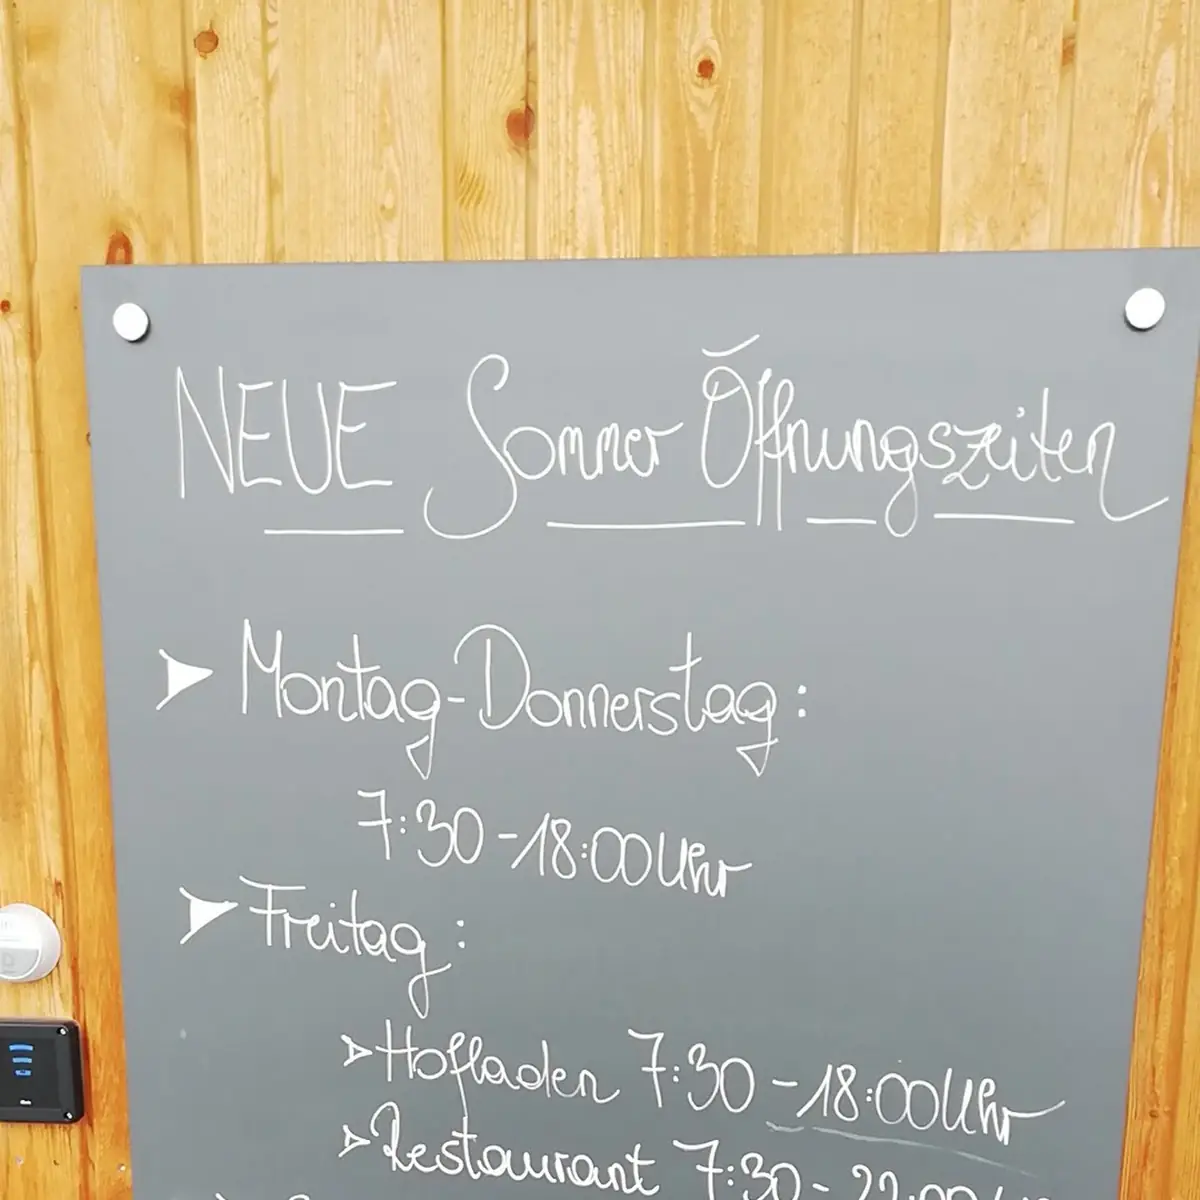 NEUE Sommer Öffnungszeiten
➤ Montag-Donnerstag:
7:30-18:00Uhr
➤ Freitag:
➤ Hofladen 7:30-18:00Uhr
➤ Restaurant 7:30-22:00